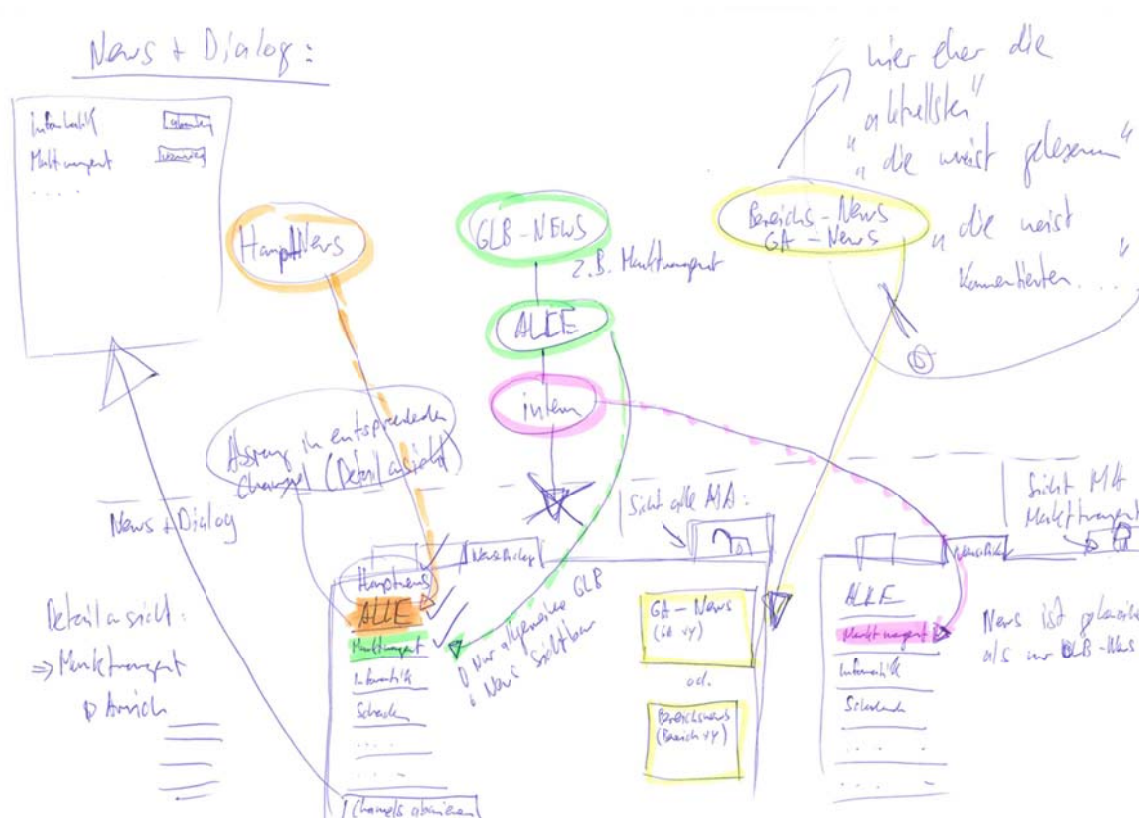 News + Dialog:
Informatik
Marktmngent
.....
HauptNews
GLB-NEWS
z.B. Marktmngent
ALLE
intern
Bereichs-News
GA-News
hier eher die
"aktuellsten"
"die meist gelesenen"
"die meist
kommentierten...."
Absprung in entsprechenden
Channel (Detailansicht)
News + Dialog
Detailansicht:
=> Marktmngent
Hauptnews
ALLE
Marktmngent
Informatik
Schaden
.....
.....
Channels abonnieren
Nur allgemeine GLB
News sichtbar
Sicht alle MA:
GA-News
od.
Bereichsnews
(Bereich xy)
Sicht MA
Marktmngent
ALLE
Marktmngent
Informatik
Schaden
News ist
als nur GLB-News